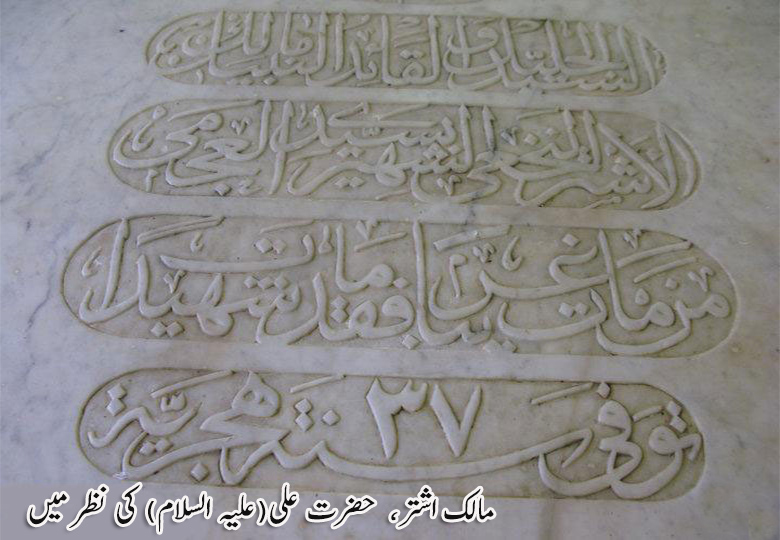 السيد الجليل والقائد النبيل مالك
الاشتر النخعي الشهير بسيدي العجمي
من مات غريبا فقد مات شهيدا
توفى سنة ٣٧ هجرية
مالک اشتر، حضرت علی(علیہ السلام) کی نظر میں